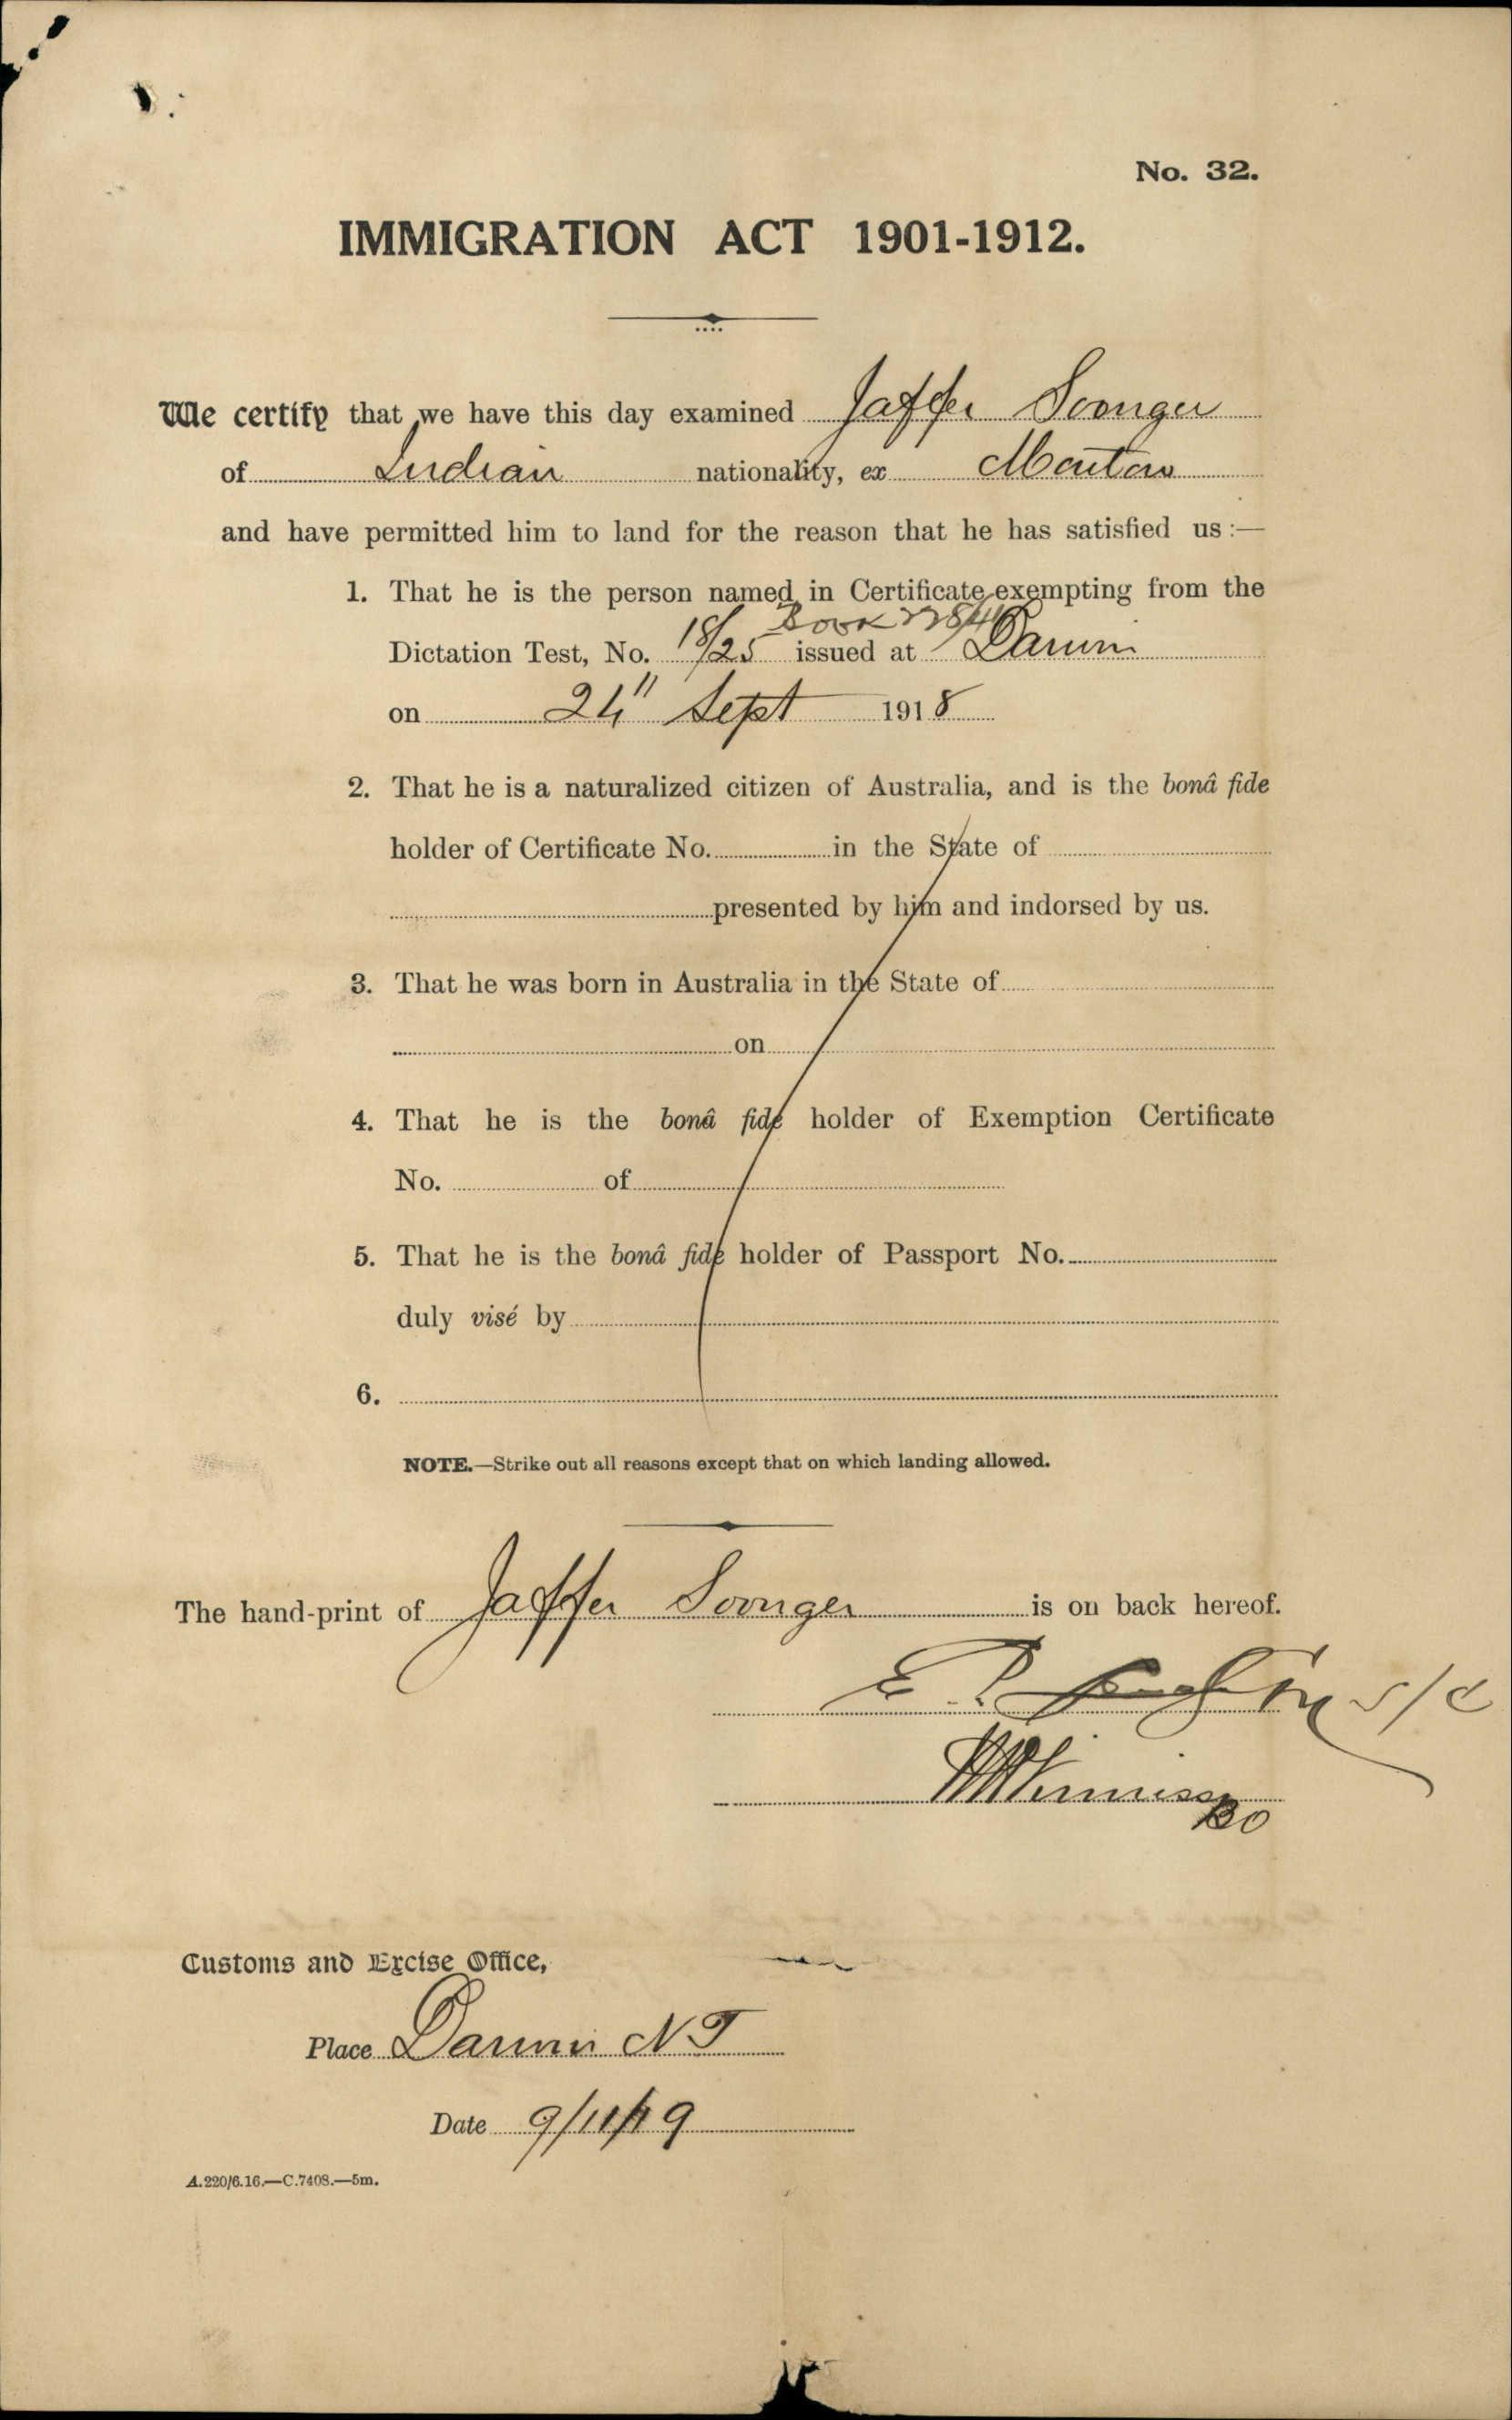 No. 32.
IMMIGRATION ACT 1901-1912.
We certify that we have this day examined Jaffer Soonger
of Indian nationality, ex
and have permitted him to land for the reason that he has satisfied us :—
1. That he is the person named in Certificate exempting from the
Book
Dictation Test, No. 18/25 issued at Darwin
on 24" Sept 1918
2. That he is a naturalized citizen of Australia, and is the bonâ fide
holder of Certificate No. in the State of
presented by him and indorsed by us.
3. That he was born in Australia in the State of
on
4. That he is the bonâ fide holder of Exemption Certificate
No. of
5. That he is the bonâ fide holder of Passport No.
duly visé by
6.
NOTE.—Strike out all reasons except that on which landing allowed.
The hand-print of Jaffer Soonger is on back hereof.
Customs and Excise Office,
Place Darwin N.T
Date 9/11/19
A.220/6.16.—C.7408.—5m.